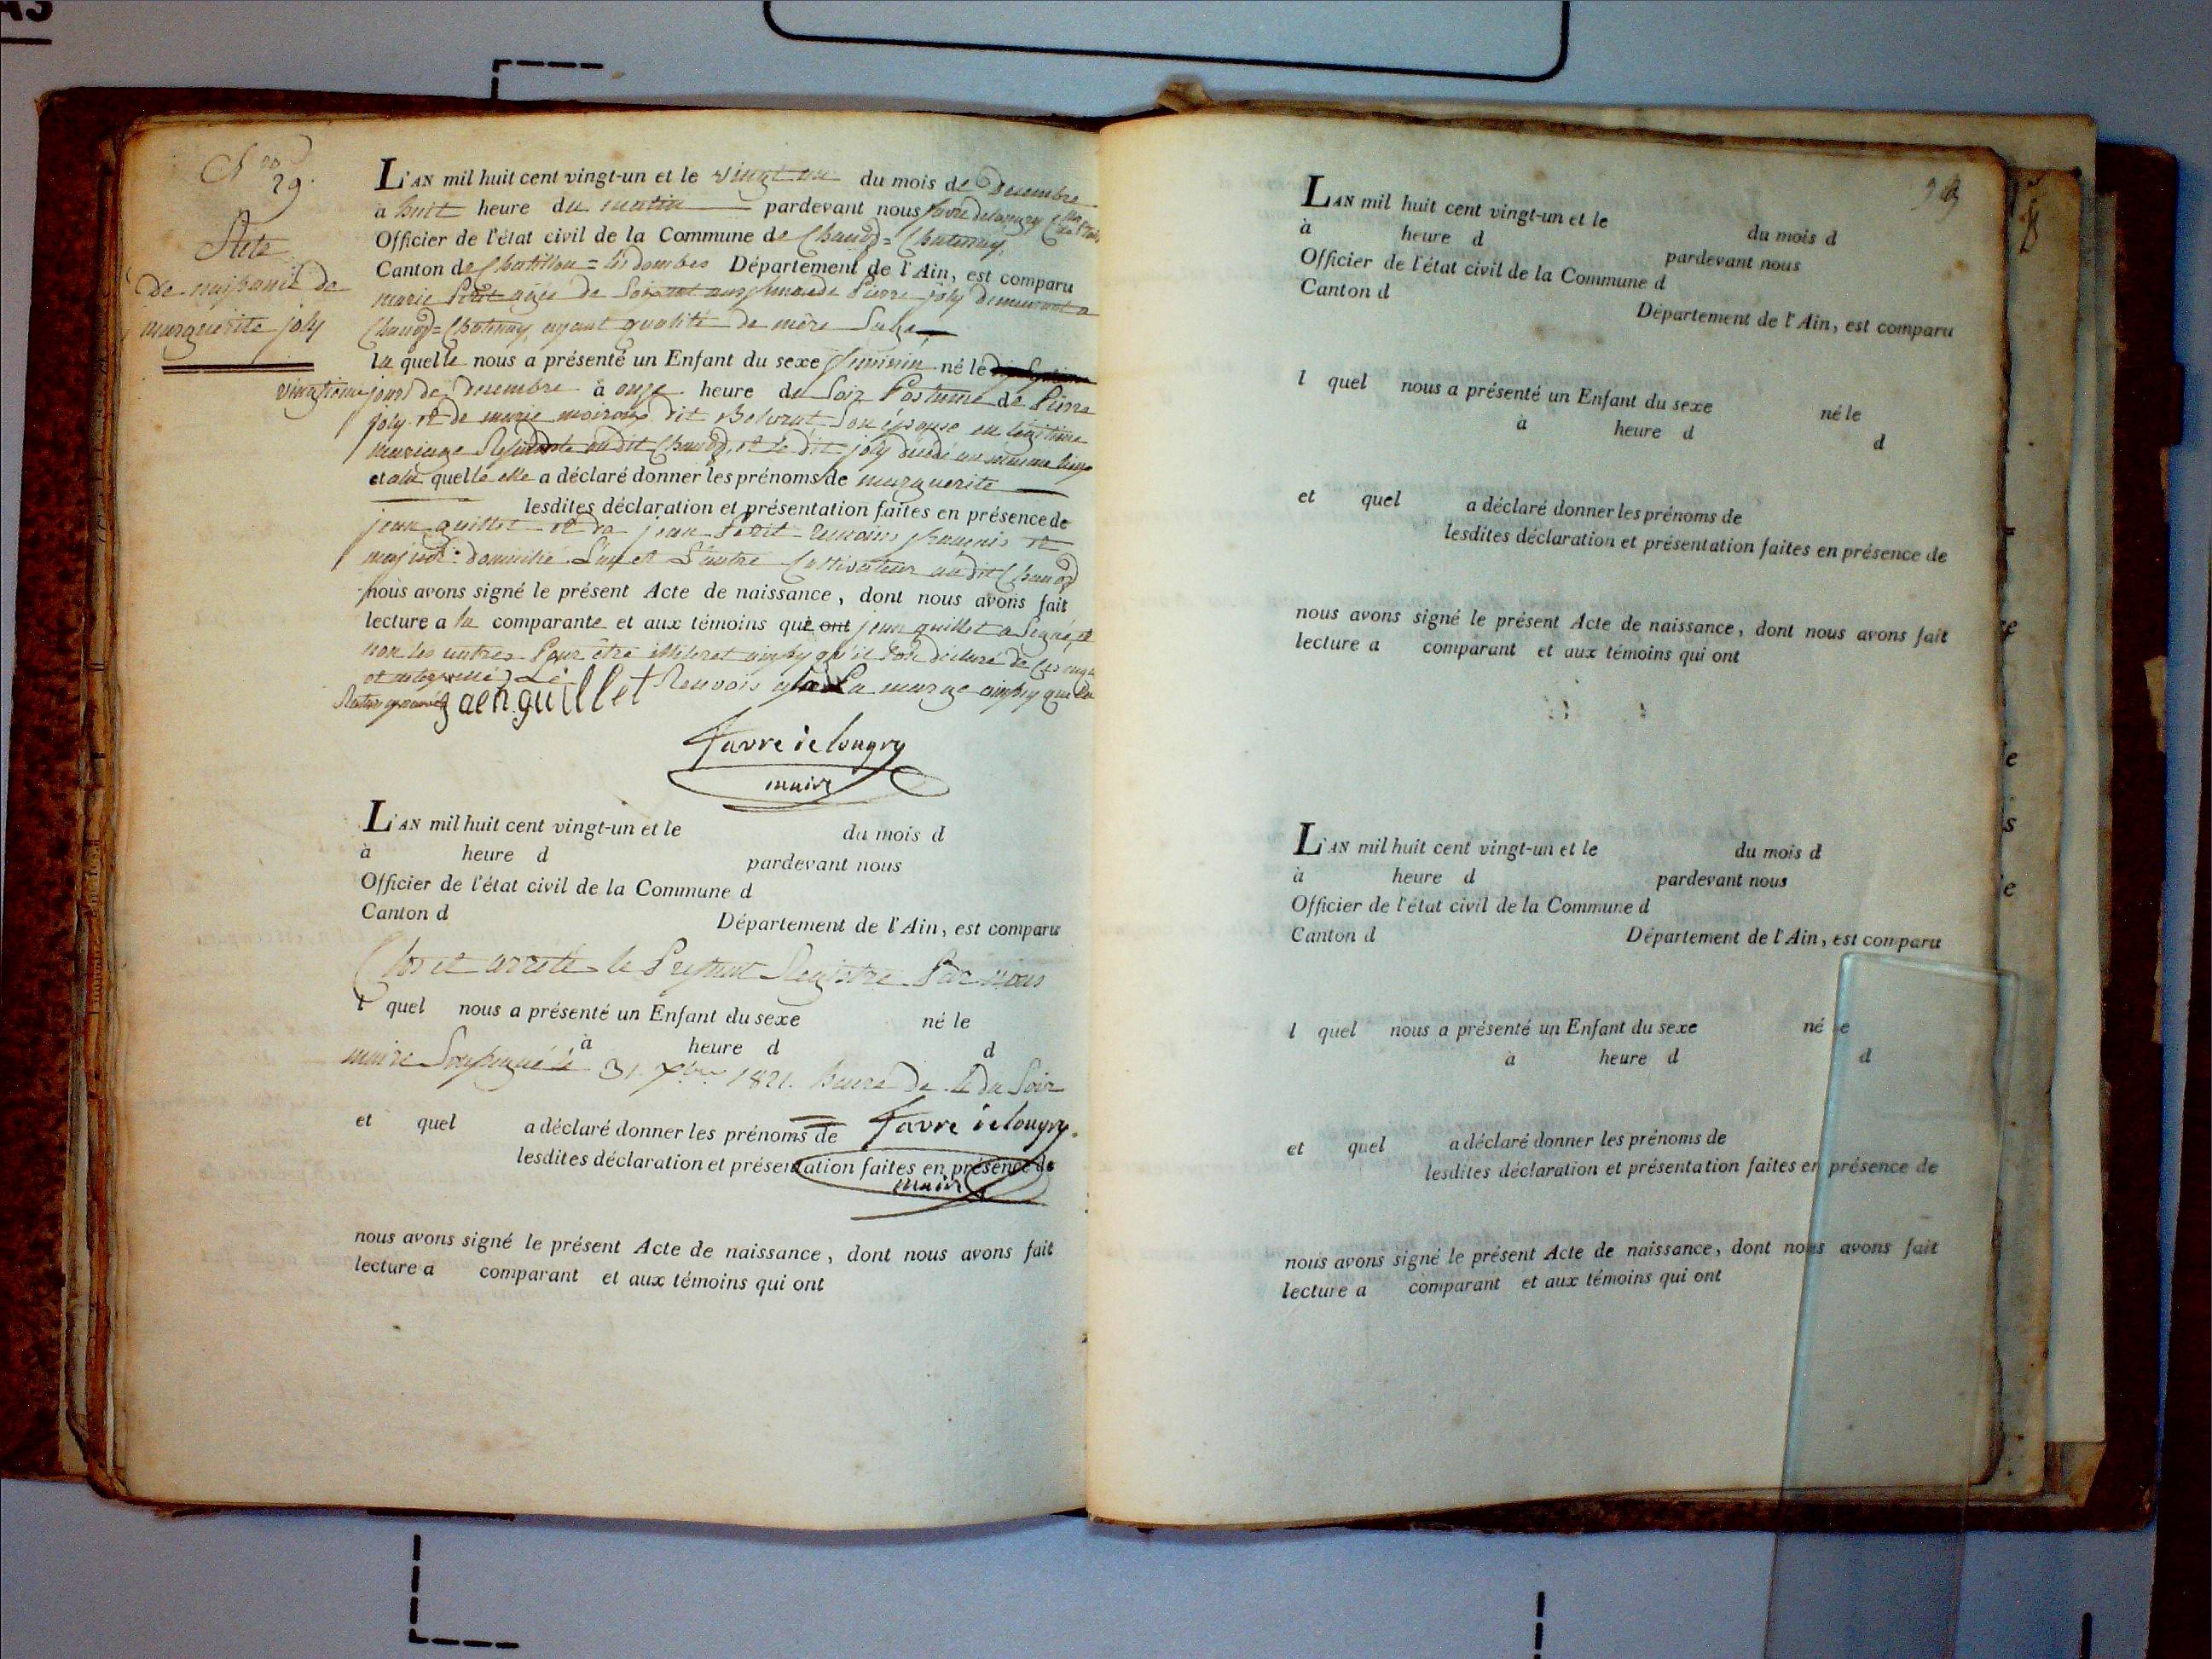 A3
No
29.
Acte
de naissance de
marguerite joly
L'AN mil huit cent vingt-un et le vingt un du mois de Decembre
à huit heure du matin pardevant nous favre delongry
Officier de l'état civil de la Commune de Chanoz=Chatenay,
Canton de Chatillon=les dombes Département de l'Ain, est comparu
marie Petit agée de Soixante ans, de Pierre joly demeurant a
Chanoz=Chatenay, ayant qualité de mère
la quelle nous a présenté un Enfant du sexe feminin né le
vingtieme jour de Decembre à onze heure du Soir Postume de Pierre
joly et de marie dit Son épouse en légitime
mariage audit Chanoz, et le dit joly décédé au
et a la quelle elle a déclaré donner les prénoms de marguerite
lesdites déclaration et présentation faites en présence de
jean guillet et de jean Petit temoins et
majeur domicilié L'un et L'autre Cultivateur audit Chanoz
nous avons signé le présent Acte de naissance, dont nous avons fait
lecture a la comparante et aux témoins que ont jean guillet a Signé, et
non les autres Pour être illiteret ainsy qu'il ont déclaré de
Renvois a La marge ainsy que
Jaen guillet
favre delongry
maire
L'AN mil huit cent vingt-un et le du mois d
à heure d pardevant nous
Officier de l'état civil de la Commune d
Canton d Département de l'Ain, est comparu
Clos et arrêté le Present Registre Par Nous
l quel nous a présenté un Enfant du sexe né le
à heure d d
maire Soussigné le 31. Xbre 1821. heure de du Soir
et quel a déclaré donner les prénoms de favre delongry
lesdites déclaration et présentation faites en présence de
maire
nous avons signé le présent Acte de naissance, dont nous avons fait
lecture a comparant et aux témoins qui ont
L'AN mil huit cent vingt-un et le du mois d
à heure d pardevant nous
Officier de l'état civil de la Commune d
Canton d Département de l'Ain, est comparu
l quel nous a présenté un Enfant du sexe né le
à heure d d
et quel a déclaré donner les prénoms de
lesdites déclaration et présentation faites en présence de
nous avons signé le présent Acte de naissance, dont nous avons fait
lecture a comparant et aux témoins qui ont
L'AN mil huit cent vingt-un et le du mois d
à heure d pardevant nous
Officier de l'état civil de la Commune d
Canton d Département de l'Ain, est comparu
l quel nous a présenté un Enfant du sexe né le
à heure d d
et quel a déclaré donner les prénoms de
lesdites déclaration et présentation faites en présence de
nous avons signé le présent Acte de naissance, dont nous avons fait
lecture a comparant et aux témoins qui ont